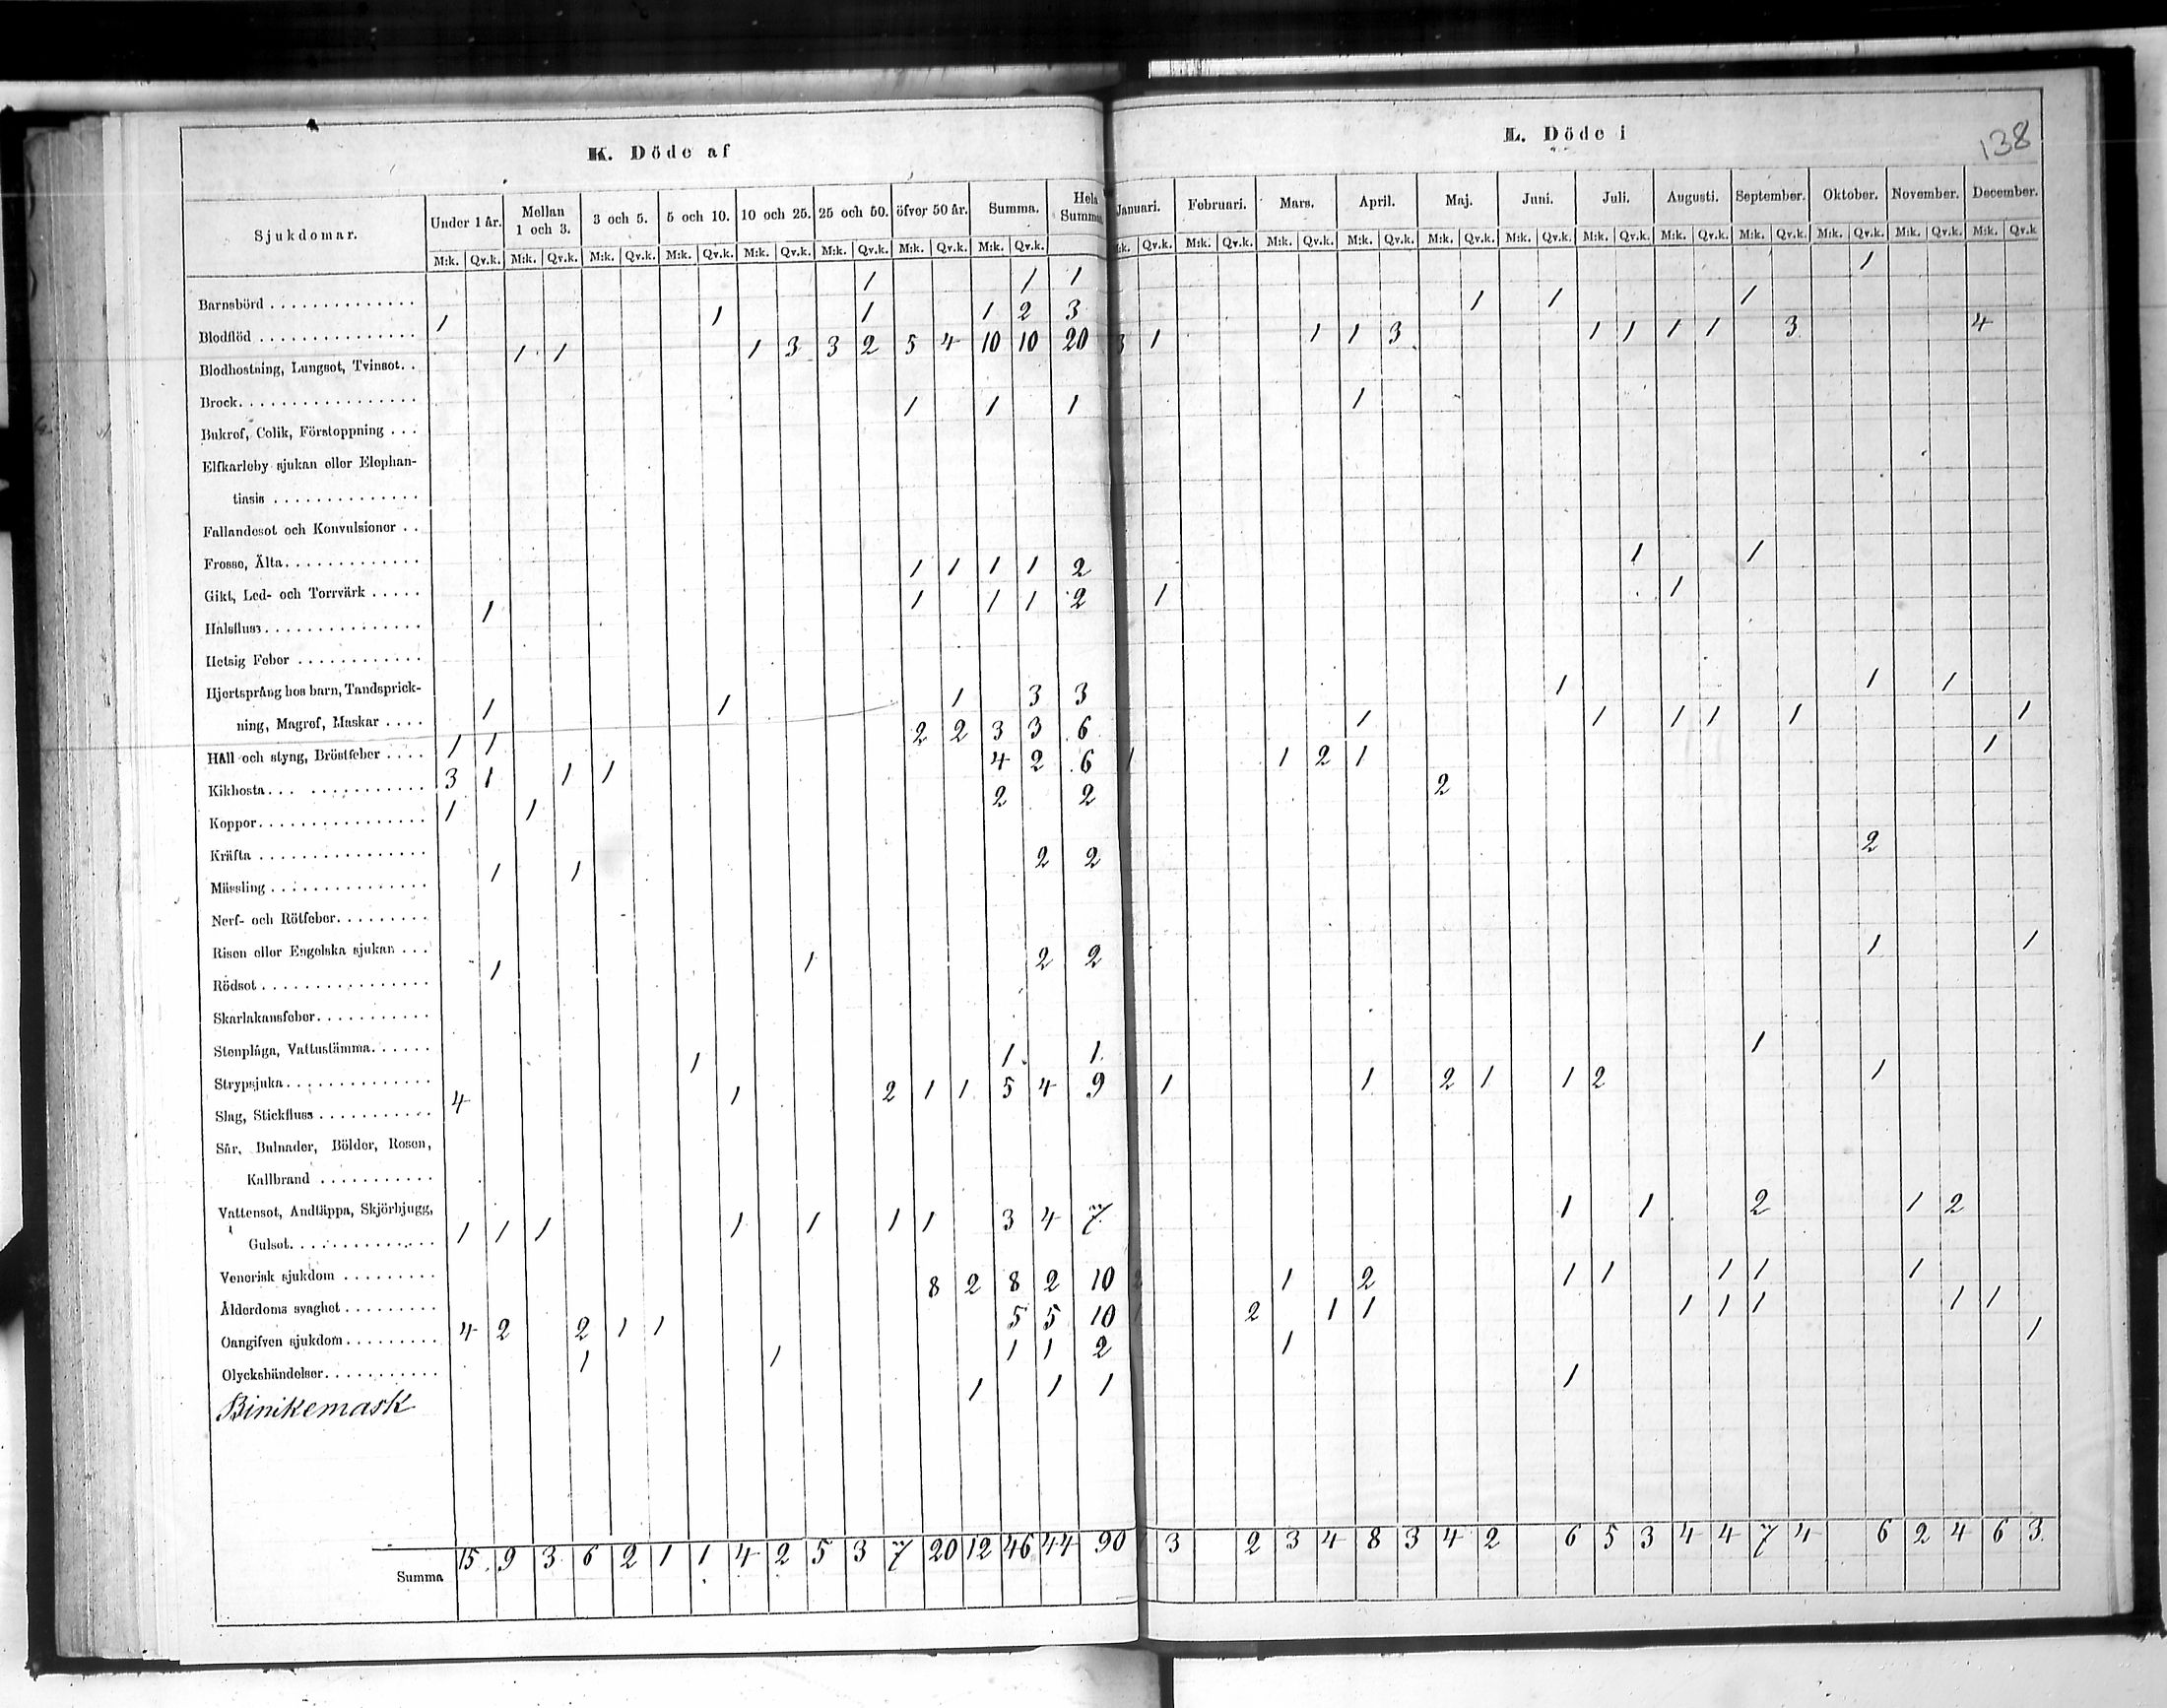 K. Döde af
L. Döde i
138
Sjukdomar. Under 1 år. Mellan 1 och 3. 3 och 5. 5 och 10. 10 och 25. 25 och 50. öfver 50 år. Summa. Hela Summa
Januari. Februari. Mars. April. Maj. Juni. Juli. Augusti. September. Oktober. November. December.
M:k. Qv.k. M:k. Qv.k. M:k. Qv.k. M:k. Qv.k. M:k. Qv.k. M:k. Qv.k. M:k. Qv.k. M:k. Qv.k.
M:k. Qv.k. M:k. Qv.k. M:k. Qv.k. M:k. Qv.k. M:k. Qv.k. M:k. Qv.k. M:k. Qv.k. M:k. Qv.k. M:k. Qv.k. M:k. Qv.k. M:k. Qv.k. M:k. Qv.k
Barnsbörd 1 1 1 1
Blodflöd 1 1 1 1 2 3 1 1 1
Blodhostning, Lungsot, Tvinsot. 1 1 1 3 3 2 5 4 10 10 20 3 1 1 1 3 1 1 1 1 3 4
Brock
Bukref, Colik, Förstoppning 1 1 1 1
Elfkarleby sjukan eller Elephan-
tiasis
Fallandesot och Konvulsioner
Frossa, Älta
Gikt, Led- och Torrvärk 1 1 1 1 2 1 1
Halsfluss 1 1 1 1 2 1 1
Hetsig Feber
Hjertsprång hos barn, Tandsprick-
ning, Magref, Maskar 1 1 1 3 3 1 1 1
Håll och styng, Bröstfeber 1 1 2 2 3 3 6 1 1 1 1 1 1
Kikhosta 3 1 1 1 4 2 6 1 1 2 1 1
Koppor 1 1 2 2 2
Kräfta
Mässling 1 1 2 2 2
Nerf- och Rötfeber
Risen eller Engelska sjukan
Rödsot 1 1 2 2 1 1
Skarlakansfeber
Stenplåga, Vattustämma
Strypsjuka 1 1 1 1
Slag, Stickfluss 4 1 2 1 1 5 4 9 1 1 2 1 1 2 1
Sår, Bulnader, Bölder, Rosen,
Kallbrand
Vattensot, Andtäppa, Skjörbjugg,
Gulsot 1 1 1 1 1 1 1 3 4 7 1 1 2 1 2
Venerisk sjukdom
Ålderdoms svaghet 8 2 8 2 10 2 1 2 1 1 1 1 1
Oangifven sjukdom 4 2 2 1 1 5 5 10 1 2 1 1 1 1 1 1 1
Olyckshändelser 1 1 1 1 2 1 1
Binikemask 1 1 1 1
Summa 15 9 3 6 2 1 1 4 2 5 3 7 20 12 46 44 90 3 2 3 4 8 3 4 2 6 5 3 4 4 7 4 6 2 4 6 3